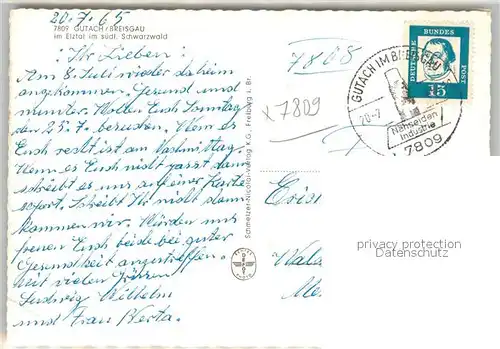 20.7.65
7809 GUTACH/BREISGAU
im Elztal im südl. Schwarzwald
Ihr Lieben!
Am 8. Juli wieder daheim
angekommen. Gesund und
munter. Wollen Euch Sonntag
den 25.7. besuchen. Wenn es
Euch recht ist am Nachmittag.
Wenn es Euch nicht passt dann
schreibt es uns auf einer Karte
sofort. Schreibt Ihr nicht dann
kommen wir. Würden uns
freuen Euch beide bei guter
Gesundheit anzutreffen.
Mit vielen Grüssen
Ludwig Wilhelm
und Frau Berta.
Schmelzer-Nicolai-Verlag K.G., Freiburg i. Br.
7808
x 7809
GUTACH IM BREISGAU
20.-7.
Nähseiden
Industrie
7809
DEUTSCHE BUNDES POST
15
privacy protection
Datenschutz